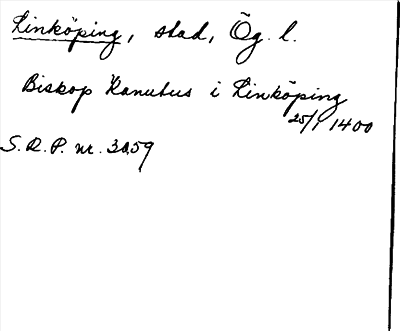 Linköping, stad, Ög. l.
Biskop Kanutus i Linköping
25/1 1400
S.R.P. nr. 3059